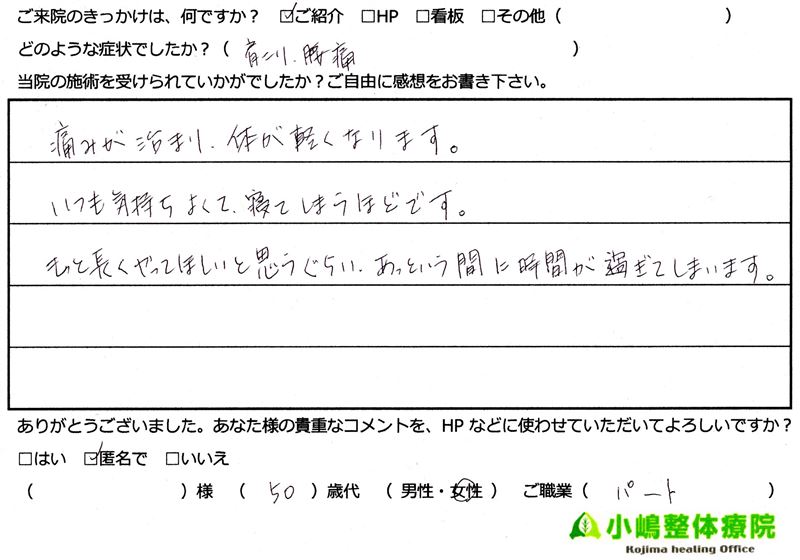 ご来院のきっかけは、何ですか？ ☑ご紹介 □HP □看板 □その他（ ）
どのような症状でしたか？（ 肩こり、腰痛 ）
当院の施術を受けられていかがでしたか？ご自由に感想をお書き下さい。
痛みが治まり、体が軽くなります。
いつも気持ちよくて、寝てしまうほどです。
もっと長くやってほしいと思うぐらい、あっという間に時間が過ぎてしまいます。
ありがとうございました。あなた様の貴重なコメントを、HPなどに使わせていただいてよろしいですか？
□はい ☑匿名で □いいえ
（ ）様 （ 50 ）歳代 （ 男性・女性 ） ご職業（ パート ）
小嶋整体療院
Kojima healing Office